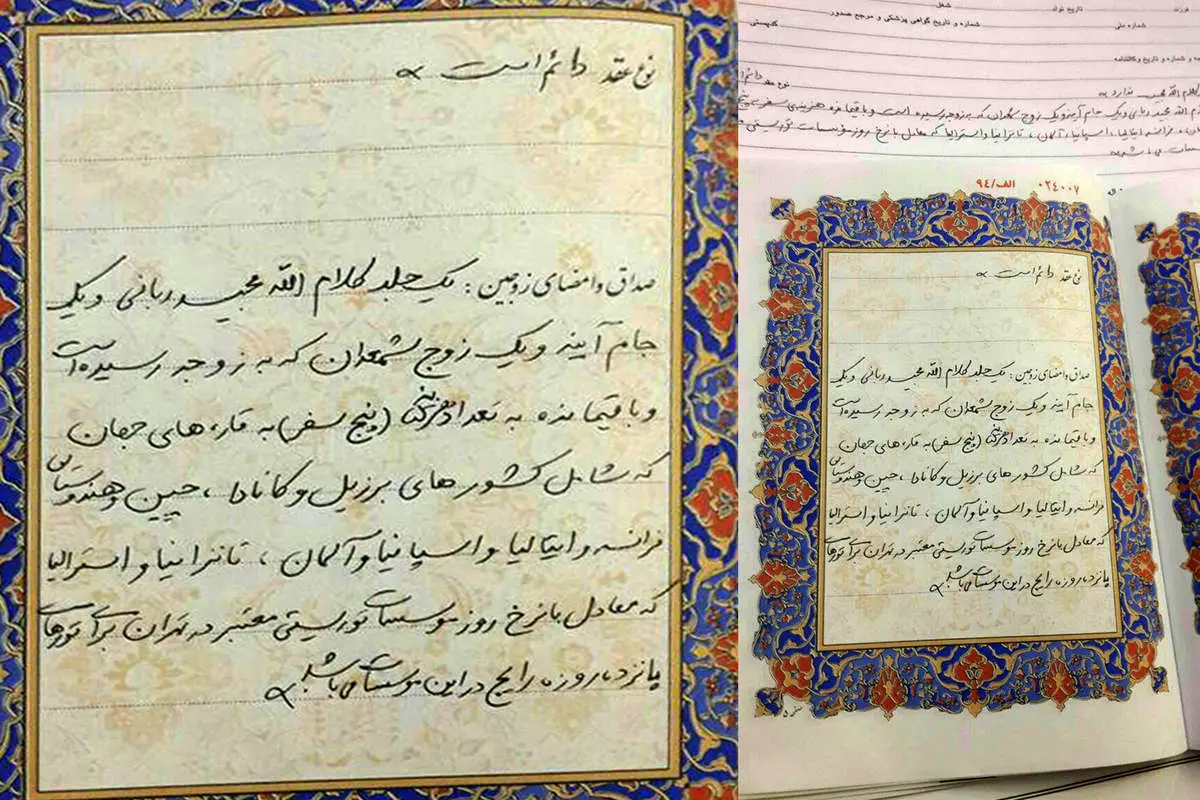 نوع عقد دائم است
صداق و امضای زوجین: یک جلد کلام الله مجید ربانی و یک
جام آینه و یک زوج شمعدان که به زوجه رسیده است
و باقیمانده به تعداد هزینه (پنج سفر) به قاره های جهان
که شامل کشورهای برزیل و کانادا، چین و هندوستان
فرانسه و ایتالیا و اسپانیا و آلمان، تانزانیا و استرالیا
که معادل با نرخ روز موسسات توریستی معتبر در تهران برای تورهای
پانزده روزه رایج در این موسسات می باشد
شغل
تاریخ تولد
فرزند
شماره ملی
شماره و تاریخ گواهی پزشکی و مرجع صدور
کدپستی
و شماره و تاریخ وکالتنامه
نوع عقد دائم
کلام الله مجید ندارد
الله مجید ربانی و یک جام آینه و یک زوج شمعدان که به زوجه رسیده است و باقیمانده هزینه سفر پنج
فرانسه ایتالیا، اسپانیا، آلمان، تانزانیا و استرالیا که معادل با نرخ روز موسسات توریستی
می باشد
الف/۹۴ ۰۲۴۰۰۷
نوع عقد دائم است
صداق و امضای زوجین: یک جلد کلام الله مجید ربانی و یک
جام آینه و یک زوج شمعدان که به زوجه رسیده است
و باقیمانده به تعداد هزینه (پنج سفر) به قاره های جهان
که شامل کشورهای برزیل و کانادا، چین و هندوستان
فرانسه و ایتالیا و اسپانیا و آلمان، تانزانیا و استرالیا
که معادل با نرخ روز موسسات توریستی معتبر در تهران برای تورهای
پانزده روزه رایج در این موسسات می باشد